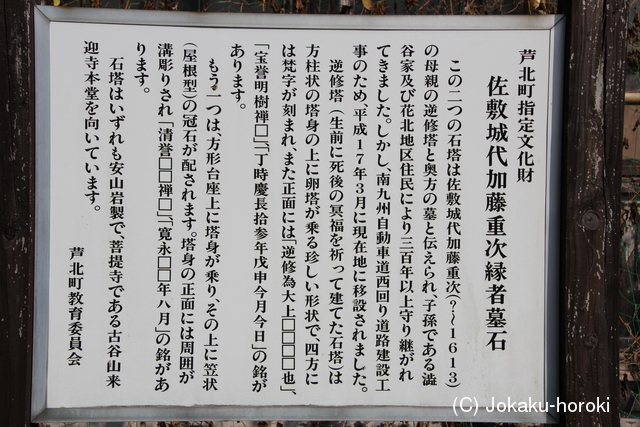 芦北町指定文化財
佐敷城代加藤重次縁者墓石
この二つの石塔は佐敷城代加藤重次(？～1613)
の母親の逆修塔と奥方の墓と伝えられ、子孫である澁
谷家及び花北地区住民により三百年以上守り継がれ
てきました。しかし、南九州自動車道西回り道路建設工
事のため、平成17年3月に現在地に移設されました。
逆修塔(生前に死後の冥福を祈って建てた石塔)は
方柱状の塔身の上に卵塔が乗る珍しい形状で、四方に
は梵字が刻まれ、また正面には「逆修為大上□□□□也」、
「宝誉明樹禅□」、「丁時慶長拾参年戊申今月今日」の銘が
あります。
もう一つは、方形台座上に塔身が乗り、その上に笠状
(屋根型)の冠石が配されます。塔身の正面には周囲が
溝彫りされ「清誉□□禅□」、「寛永□□年八月」の銘があ
ります。
石塔はいずれも安山岩製で、菩提寺である古谷山来
迎寺本堂を向いています。
芦北町教育委員会
(C) Jokaku-horoki